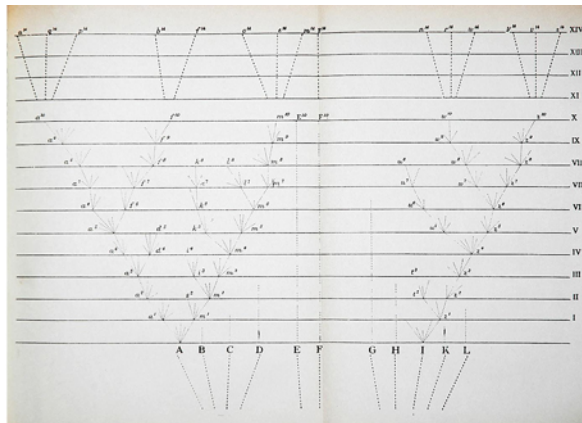 a¹⁴ q¹⁴ p¹⁴ b¹⁴ f¹⁴ o¹⁴ e¹⁴ m¹⁴ F¹⁴ n¹⁴ r¹⁴ w¹⁴ y¹⁴ v¹⁴ z¹⁴ XIV
XIII
XII
XI
a¹⁰ f¹⁰ m¹⁰ E¹⁰ F¹⁰ w¹⁰ z¹⁰ X
a⁹ f⁹ m⁹ w⁹ z⁹ IX
a⁸ f⁸ k⁸ l⁸ m⁸ u⁸ w⁸ z⁸
a⁷ f⁷ l⁷ m⁷ u⁷ w⁷ z⁷ VII
a⁶ f⁶ k⁶ m⁶ u⁶ z⁶ VI
a⁵ d⁵ k⁵ m⁵ u⁵ z⁵ V
d⁴ i⁴ m⁴ z⁴ IV
a³ i³ m³ t³ z³ III
a² s² m² t² z² II
a¹ m¹ z¹ I
A B C D E F G H I K L